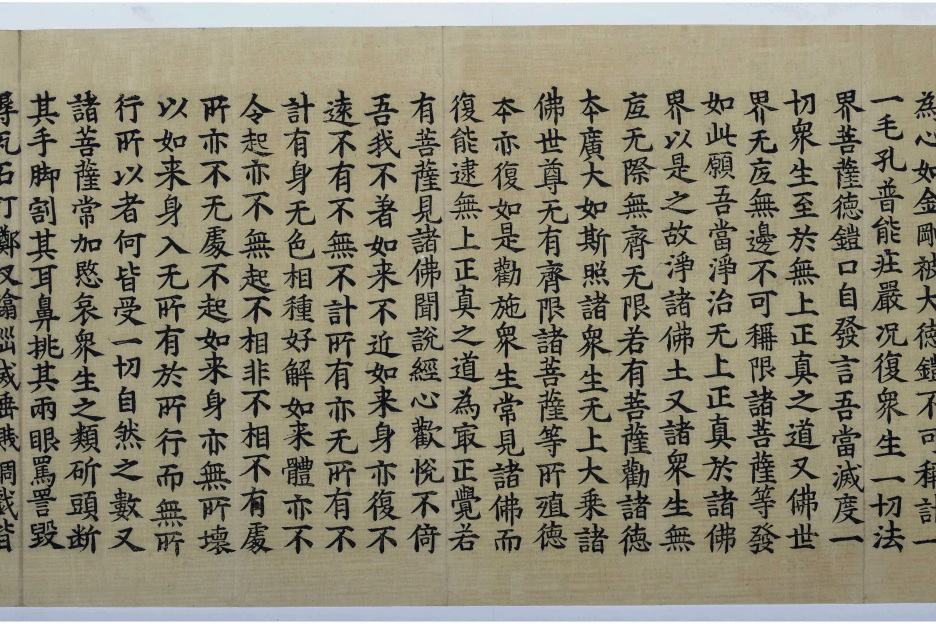 為心如金剛被大德鎧不可稱計一
一毛孔普能莊嚴况復衆生一切法
界菩薩德鎧口自發言吾當滅度一
切衆生至於無上正真之道又佛世
界无㡯無邊不可稱限諸菩薩等發
如此願吾當淨治无上正真於諸佛
界以是之故淨諸佛土又諸衆生無
㡯无際無齊无限若有菩薩勸諸德
夲廣大如斯照諸衆生无上大乘諸
佛世尊无有齊限諸菩薩等所殖德
夲亦復如是勸施衆生常見諸佛而
復能逮無上正真之道為冣正覺若
有菩薩見諸佛聞說經心歡悅不倚
吾我不著如来不近如来身亦復不
遠不有不無不計所有亦无所有不
計有身无色相種好解如来體亦不
令起亦不無起不相非不相不有處
所亦不无處不起如来身亦無所壞
以如来身入无所有於所行而無所
行所以者何皆受一切自然之數又
諸菩薩常加愍哀衆生之類斫頭断
其手脚割其耳鼻挑其兩眼罵詈毀
瓦石打擲又